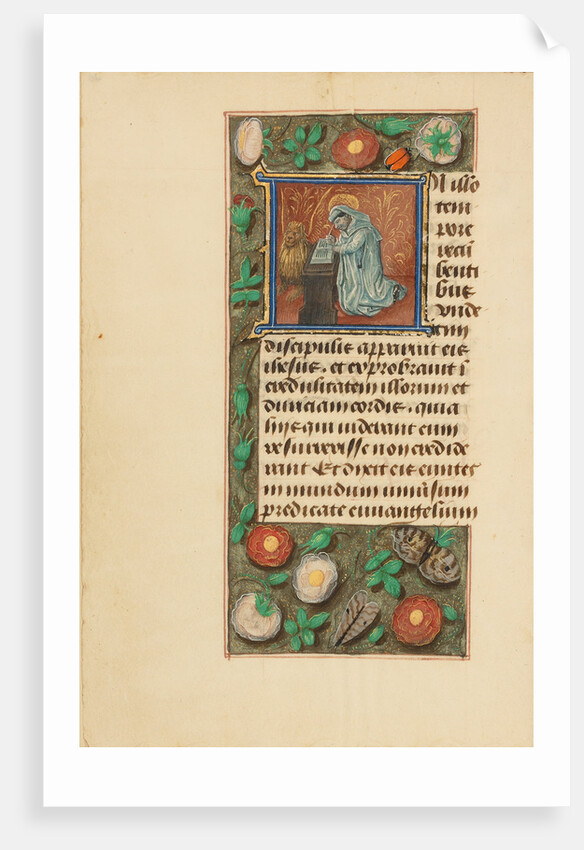 N illo
tem
pore
recũ
benti
bus
unde
cim
discipulis apparuit eis
ihesus. et exprobrauit ĩ
credulitatem illorum et
duriciam cordis. quia
hijs qui uiderant eum
resurrexisse non credide
rant Et dixit eis euntes
in mundum uniũsum
predicate euuangelium